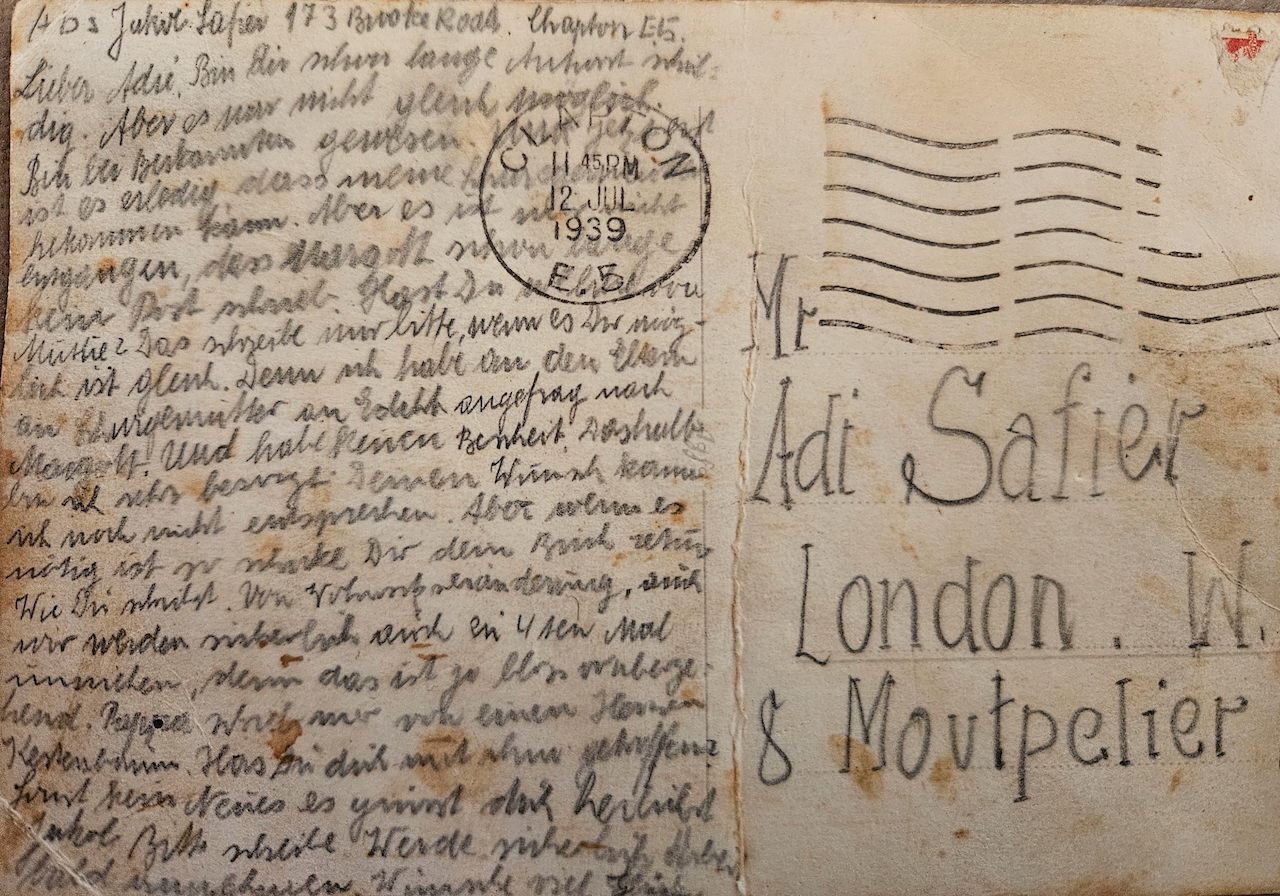 Abs Jakob Safier 173 Brooke Road. Clapton E5.
Lieber Adi, Bin dir schon lange Antwort schul-
dig. Aber es war nicht gleich möglich.
Bin bei Bekannten gewesen. Und jetzt erst
ist es erledig, dass meine
bekommen kann. Aber es ist mir nicht
entgangen, dass Margott schon lange
kein Post schrieb. Hast Du von
Muttie? Das schreibe mir bitte, wenn es Dir mög-
lich ist gleich. Denn ich habe an den Eltern
an an Edeth angefrag nach
Margott. Und habe keinen Bescheit. Deshalb
bin ich sehr besorgt Deinen Wunsch kann
ich noch nicht entsprechen. Aber wenn es
nötig ist so schicke Dir dein zrück
Wie Du schribst. Von Wohnungsveränderung, auch
wir werden sicherlich auch zu 4 ten Mal
umziehen, denn das ist ja bloss vorüberge-
hend. Pappa schrieb mir von einen Herren
Kestenbaum. Has Du dich mit ihm getroffen?
Sonst kein Neues es grüsst dich herzlichst
Jakob Bitte schreibe Werde sicherlich
Bald Wünsche viel Glück
CLAPTON
11 45 PM
12 JUL
1939
E.5
Mr
Adi Safier
London. W.
8 Montpelier